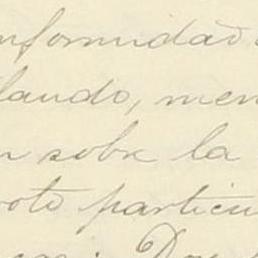 nformidad
lando, men
n sobre la
oto particu